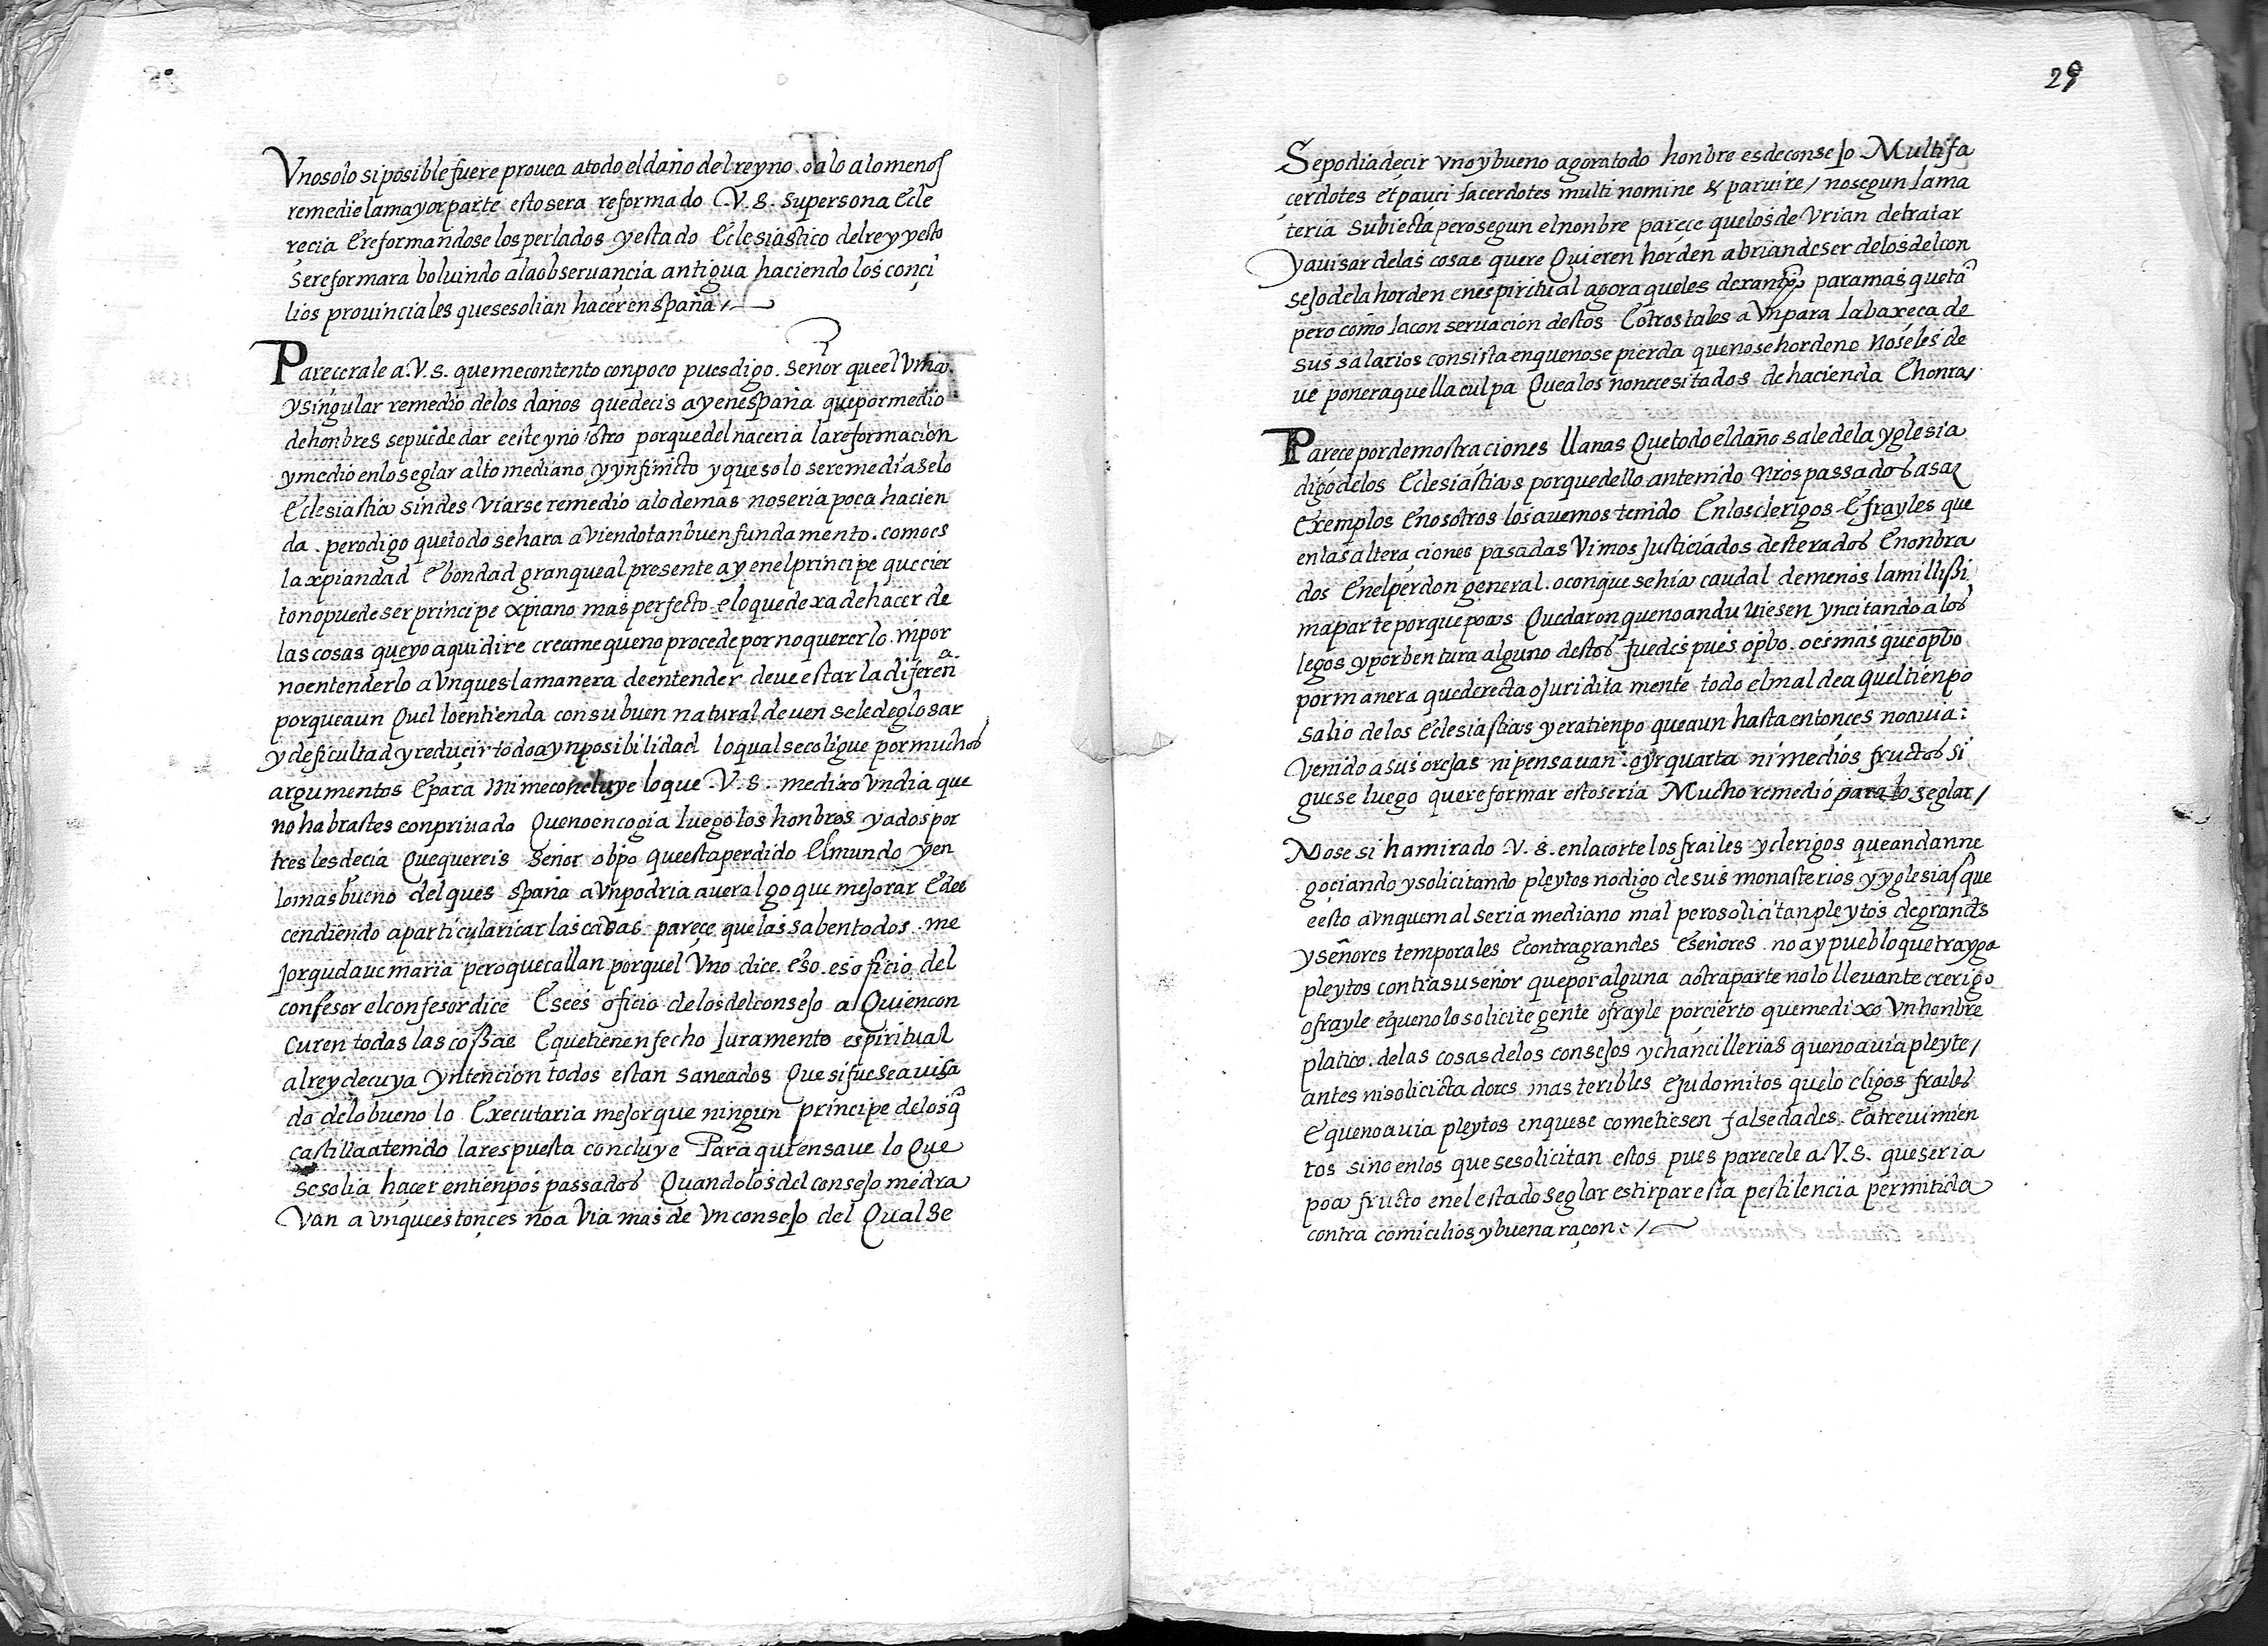 Vnosolo siposible fuere prouea atodo eldaño delreyno . oalo alomenos
remedie lamayorparte estosera reformado C.V.S. supersona Ecle
reçia Ereformandose losperlados yestado Eclesiastico delrey yesto
sereformara boluindo alaobseruançia antigua haciendo los conçi
lios prouinciales quesesolian hacer enspaña /
Parecerale a .V.S. quemecontento conpoco puesdigo . señor queel Vnico
ysingular remedio delos daños quedecis ayenespaña quepormedio
dehonbres sepuede dar eeste yno otro porquedelnaceria lareformacion
ymedio enloseglar alto mediano yynfinicto yquesolo seremediaselo
Eclesiastico sindes Viarse remedio alodemas noseria poca hacien
da . perodigo quetodo sehara aViendotanbuen fundamento . comoes
laxpiandad Ebondad granqueal presente ay enelprincipe quecier
tonopuede ser principe xpiano mas perfecto eloquedexa dehacer de
lascosas queyo aquidire creame queno procede por no quererlo . nipor
noentenderlo aVnques lamanera deentender deue estar ladiferenª
porqueaun Quel loentienda consubuen natural deuen seledeglosar
ydeficultad yreduçir todo aynposibilidad loqualsecoligue pormuchos
argumentos Epara mi meconcluye loque .V.S. medixo Vndia que
nohabrastes conpriuado Quenoencogia luego los honbros yadospor
tres lesdecia Quequereis señor obpo queestaperdido Elmundo yen
lomasbueno delques spaña aVnpodria aueralgo que mejorar Edes
cendiendo aparticularicar lascosas parece quelassabentodos . me
jorqudaue maria peroquecallan porquel Vno dice . eso . esoficio del
confesor elconfesordice Esees oficio delosdelconsejo alQuiencon
curen todas las cossas Equetienen fecho Juramento espiritual
alreydecuya yntencion todos estan saneados Que sifueseauisa
do delobueno lo Executaria mejor que ningun principe delosq̃
castillaatenido larespuesta concluye Para quiensaue lo Que
sesolia haçer entienpos passados Quandolosdelconsejo medra
Van aVnqueestonçes noa Via mas de Vnconsejo del Qualse
29
Sepodiadeçir Vnoybueno agoratodo honbre esdeconsejo Multi sa
çerdotes etpauçi sacerdotes multi nomine & parui re / nosegun lama
teria subiecta perosegun elnonbre pareçe quelosde Vrian detratar
yauisar delas cosas quere Quieren horden abriandeser delosdelcon
sejodelahorden enespiritual agora queles dexan paramas quetã
pero como lacon seruacion destos Eotrostales aVnpara labaxeça de
sus salarios consista enquenose pierda quenosehordene Noseles de
ue poneraquella culpa Quealos nonecesitados de hacienda Ehonra /
Pareçe pordemostraciones llanas Quetodo eldaño saledela yglesia
digo delos Eclesiasticos porquedello antenido nr̃os passados asaz
Exemplos Enosotros losauemos tenido Enlosclerigos Efrayles que
enlas altera çiones pasadas Vimos Justiciados desterados Enonbra
dos Enelperdon general . oconque sehiço caudal demenos lamillissi
maparte porque pocos Quedaron quenoandu uiesen yncitando alos
legos yporbentura alguno destos fuedespues opbo . oesmas que opbo
pormanera quederecta ojuridita mente todo elmal deaqueltienpo
salio delos Eclesiasticos yeratienpo queaun hasta entonçes noauia :
Venido asus orejas nipensauan oyr quarta ni medios fructos si
guese luego quereformar estoseria Mucho remedio para lo seglar /
Nose si hamirado .V.S. enlacorte los frailes yclerigos queandanne
goçiando ysolicitando pleytos nodigo desus monasterios yyglesias que
eesto aVnquemal seria mediano mal perosolicitanpleytos degrandes
yseñores temporales Econtragrandes Eseñores . no ay pueblo quetrayga
pleytos contrasuseñor quepor alguna aotraparte nolo lleuante crerigo
ofrayle equenolosolicite gente ofrayle porcierto quemedixo Vnhonbre
platico . delas cosas delos consejos ychançillerias quenoauia pleyte /
antes nisolicicta dores mas teribles Ejudomitos quelo cligos frailes
Equenoauia pleytos enquese cometiesen falsedades . Eatreuimien
tos sinoenlos quesesolicitan estos pues parecele a .V.S. queseria
poco fructo enelestadoseglar estirpar esta pestilencia permitida
contra comicilios ybuena raçon : /